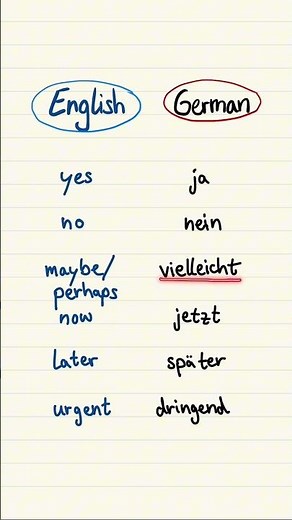 English German
yes ja
no nein
maybe/ vielleicht
perhaps
now jetzt
Later später
urgent dringend